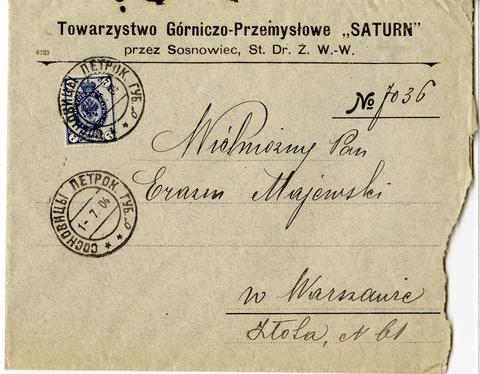 Towarzystwo Górniczo-Przemysłowe „SATURN"
przez Sosnowiec, St. Dr. Ż. W.-W.
6723
№ 7036
СОСНОВИЦЫ ПЕТРОК. ГУБ.
Wielmożny Pan
Erazm Majewski
СОСНОВИЦЫ ПЕТРОК. ГУБ.
1-7.04
w Warszawie
Złota, N 61